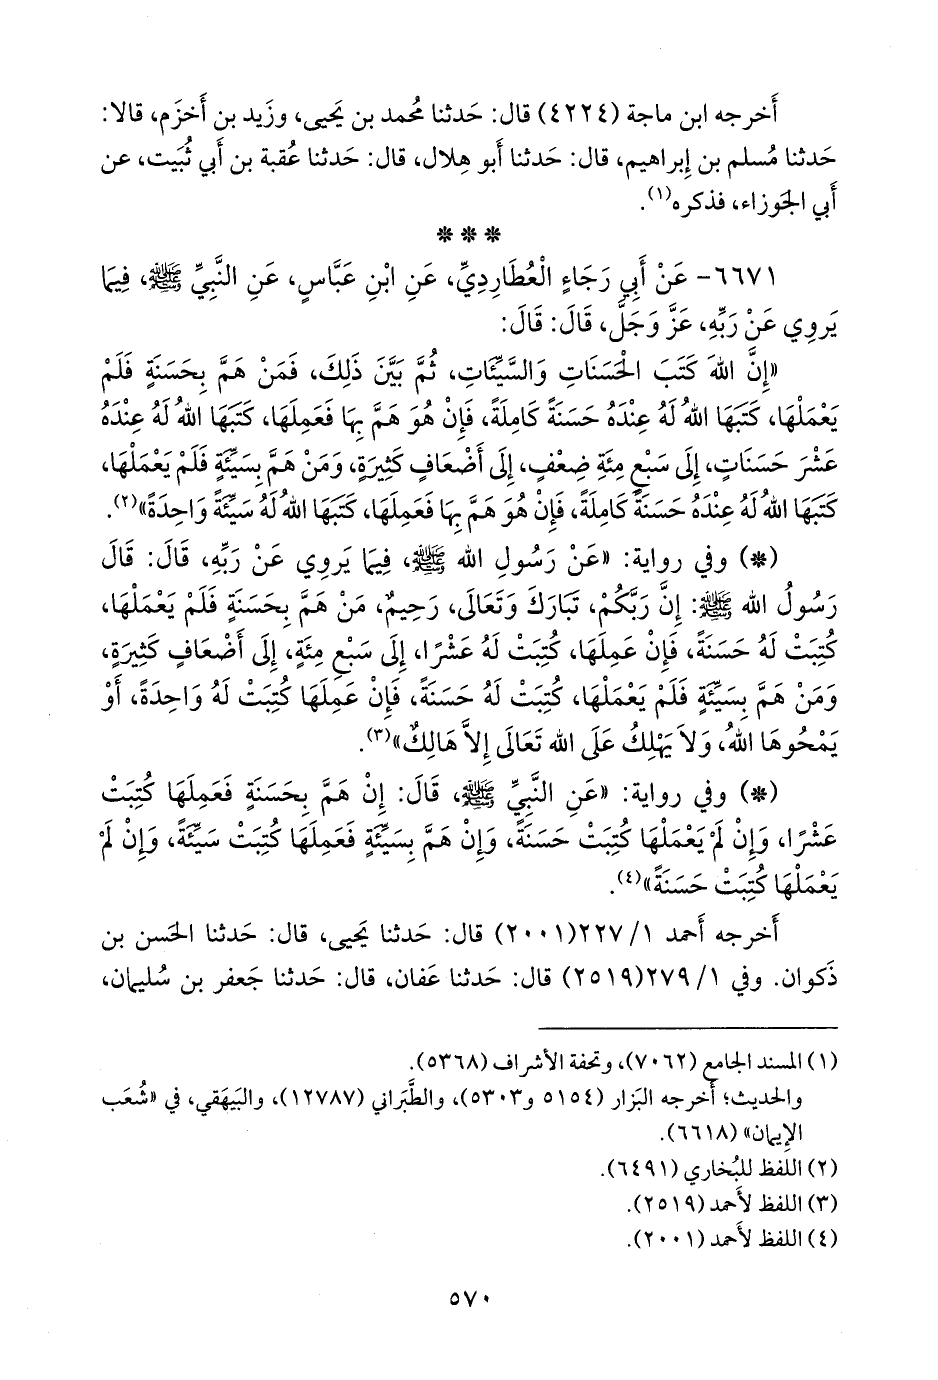 أَخرجه ابن ماجة (٤٢٢٤) قال: حَدثنا مُحمد بن يَحيى، وزَيد بن أَخزَم، قالا:
حَدثنا مُسلم بن إِبراهيم، قال: حَدثنا أَبو هِلال، قال: حَدثنا عُقبة بن أَبي ثُبَيت، عن
أَبي الجَوزاء، فذكره(١).
* * *
٦٦٧١- عَنْ أَبِي رَجَاءٍ الْعُطَارِدِيِّ، عَنِ ابْنِ عَبَّاسٍ، عَنِ النَّبِيِّ ﷺ، فِيمَا
يَروِي عَنْ رَبِّهِ، عَزَّ وَجَلَّ، قَالَ: قَالَ:
«إِنَّ اللهَ كَتَبَ الْحَسَنَاتِ وَالسَّيِّئَاتِ، ثُمَّ بَيَّنَ ذَلِكَ، فَمَنْ هَمَّ بِحَسَنَةٍ فَلَمْ
يَعْمَلْهَا، كَتَبَهَا اللهُ لَهُ عِنْدَهُ حَسَنَةً كَامِلَةً، فَإِنْ هُوَ هَمَّ بِهَا فَعَمِلَهَا، كَتَبَهَا اللهُ لَهُ عِنْدَهُ
عَشْرَ حَسَنَاتٍ، إِلَى سَبْعِ مِئَةِ ضِعْفٍ، إِلَى أَضْعَافٍ كَثِيرَةٍ، وَمَنْ هَمَّ بِسَيِّئَةٍ فَلَمْ يَعْمَلْهَا،
كَتَبَهَا اللهُ لَهُ عِنْدَهُ حَسَنَةً كَامِلَةً، فَإِنْ هُوَ هَمَّ بِهَا فَعَمِلَهَا، كَتَبَهَا اللهُ لَهُ سَيِّئَةً وَاحِدَةً»(٢).
(*) وفي رواية: «عَنْ رَسُولِ الله ﷺ، فِيمَا يَروِي عَنْ رَبِّهِ، قَالَ: قَالَ
رَسُولُ الله ﷺ: إِنَّ رَبَّكُمْ، تَبَارَكَ وَتَعَالَى، رَحِيمٌ، مَنْ هَمَّ بِحَسَنَةٍ فَلَمْ يَعْمَلْهَا،
كُتِبَتْ لَهُ حَسَنَةً، فَإِنْ عَمِلَهَا، كُتِبَتْ لَهُ عَشْرًا، إِلَى سَبْعِ مِئَةٍ، إِلَى أَضْعَافٍ كَثِيرَةٍ،
وَمَنْ هَمَّ بِسَيِّئَةٍ فَلَمْ يَعْمَلْهَا، كُتِبَتْ لَهُ حَسَنَةً، فَإِنْ عَمِلَهَا كُتِبَتْ لَهُ وَاحِدَةً، أَوْ
يَمْحُوهَا اللهُ، وَلاَ يَهْلِكُ عَلَى الله تَعَالَى إِلاَّ هَالِكٌ»(٣).
(*) وفي رواية: «عَنِ النَّبِيِّ ﷺ، قَالَ: إِنْ هَمَّ بِحَسَنَةٍ فَعَمِلَهَا كُتِبَتْ
عَشْرًا، وَإِنْ لَمْ يَعْمَلْهَا كُتِبَتْ حَسَنَةً، وَإِنْ هَمَّ بِسَيِّئَةٍ فَعَمِلَهَا كُتِبَتْ سَيِّئَةً، وَإِنْ لَمْ
يَعْمَلْهَا كُتِبَتْ حَسَنَةً»(٤).
أَخرجه أَحمد ١/ ٢٢٧(٢٠٠١) قال: حَدثنا يَحيى، قال: حَدثنا الحَسن بن
ذَكوان. وفي ١/ ٢٧٩(٢٥١٩) قال: حَدثنا عَفان، قال: حَدثنا جَعفر بن سُليمان،
(١) المسند الجامع (٧٠٦٢)، وتحفة الأشراف (٥٣٦٨).
والحديث؛ أخرجه البَزار (٥١٥٤ و٥٣٠٣)، والطَّبَراني (١٢٧٨٧)، والبَيهَقي، في «شُعَب
الإيمان» (٦٦١٨).
(٢) اللفظ للبُخاري (٦٤٩١).
(٣) اللفظ لأَحمد (٢٥١٩).
(٤) اللفظ لأَحمد (٢٠٠١).
٥٧٠